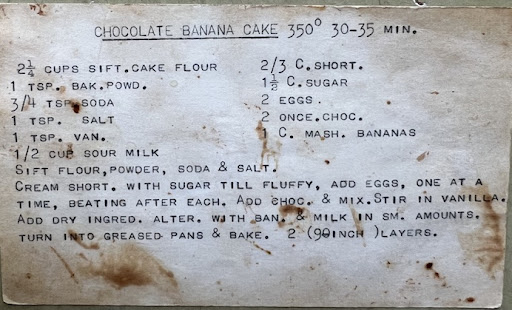 CHOCOLATE BANANA CAKE 350° 30-35 MIN.
2¼ CUPS SIFT.CAKE FLOUR
1 TSP. BAK.POWD.
3/4 TSP.SODA
1 TSP. SALT
1 TSP. VAN.
1/2 CUP SOUR MILK
2/3 C.SHORT.
1½ C.SUGAR
2 EGGS.
2 ONCE.CHOC.
1 C. MASH. BANANAS
SIFT FLOUR,POWDER, SODA & SALT.
CREAM SHORT. WITH SUGAR TILL FLUFFY, ADD EGGS, ONE AT A
TIME, BEATING AFTER EACH. ADD CHOC. & MIX.STIR IN VANILLA.
ADD DRY INGRED. ALTER. WITH BAN. & MILK IN SM. AMOUNTS.
TURN INTO GREASED PANS & BAKE. 2 (9 INCH )LAYERS.